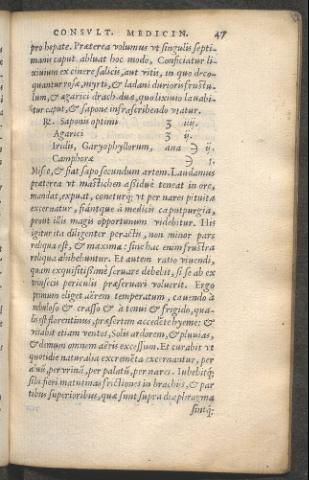 CONSVLT. MEDICIN. 47
pro hepate. Præterea volumus vt singulis septi-
manis caput abluat hoc modo, Conficiatur li-
xiuium ex cinere salicis, aut vitis, in quo deco-
quantur rosæ, myrti, & ladani durioris frustu-
lum, & agarici drach. duæ, quo lixiuio lauabi-
tur caput, & sapone infrascribendo vtatur.
℞. Saponis optimi ʒ iiij.
Agarici ʒ ij.
Iridis, Garyophyllorum, ana ℈ ij.
Camphoræ ℈ j.
Misce, & fiat sapo secundum artem. Laudamus
præterea vt mastichen assiduè teneat in ore,
mandat, expuat, coneturq; vt per nares pituita
excernatur, fiántque à medicis caputpurgia,
prout illis magis opportunum videbitur. His
igitur ita diligenter peractis, non minor pars
reliqua est, & maxima: sine hac enim frustra
reliqua adhibentur. Et autem ratio viuendi,
quam exquisitissimè seruare debebit, si se ab ex
trinseco periculi præseruari voluerit. Ergo
primum eliget aërem temperatum, cauendo à
nebuloso & crasso & à tenui & frigido, qua-
lis est florentinus, præsertim accedente hyeme: &
vitabit etiam ventos, Solis ardorem, & pluuias,
& demum omnem aëris excessum. Et curabit vt
quotidie naturalia excremēta excernantur, per
aluū, per vrinā, per palatū, per nares. Iubebitq;
sibi fieri matutinas frictiones in brachijs, & par
tibus superioribus, quæ sunt supra diaphragma
sintq;